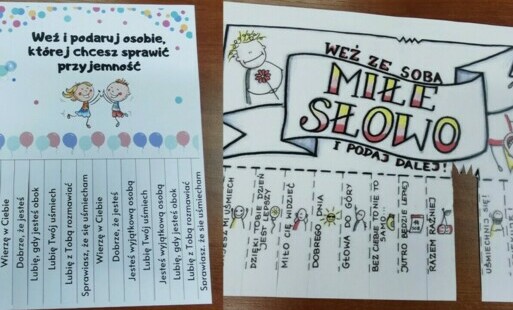 Weź i podaruj osobie,
której chcesz sprawić
przyjemność
Wierzę w Ciebie
Dobrze, że jesteś
Lubię, gdy jesteś obok
Lubię Twój uśmiech
Lubię z Tobą rozmawiać
Sprawiasz, że się uśmiecham
Wierzę w Ciebie
Dobrze, że jesteś
Jesteś wyjątkową osobą
Lubię Twój uśmiech
Jesteś wyjątkową osobą
Lubię, gdy jesteś obok
Lubię z Tobą rozmawiać
Sprawiasz, że się uśmiecham
WEŹ ZE SOBĄ
MIŁE
SŁOWO
I PODAJ DALEJ!
UŚMIECH
DZIĘKI TOBIE DZIEŃ
JEST LEPSZY
MIŁO CIĘ WIDZIEĆ
DOBREGO DNIA
GŁOWA DO GÓRY
BEZ CIEBIE TO NIE TO
SAMO...
JUTRO BĘDZIE LEPIEJ
RAZEM RAŹNIEJ
UŚMIECHNIJ SIĘ!